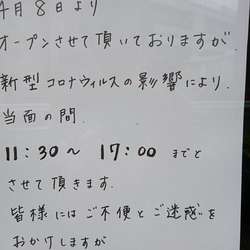 4月8日より
オープンさせて頂いておりますが.
新型コロナウィルスの影響により.
当面の間.
11:30～17:00 までと
させて頂きます.
皆様にはご不便とご迷惑を
おかけしますが